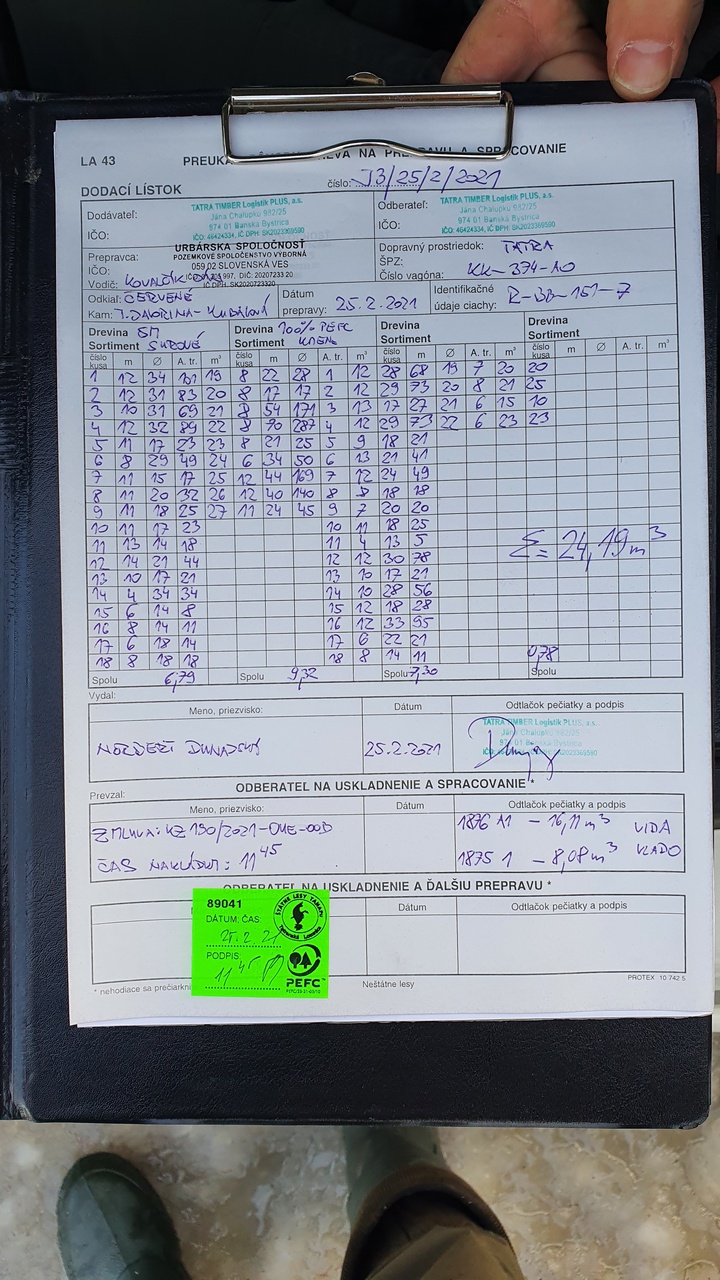 LA 43
DODACÍ LÍSTOK
číslo: J3/25/2/2021
Dodávateľ: TATRA TIMBER Logistik PLUS, a.s.
Jána Chalupku 982/25
974 01 Banská Bystrica
IČO: 46424334, IČ DPH: SK2023369590
IČO:
Odberateľ: TATRA TIMBER Logistik PLUS, a.s.
Jána Chalupku 982/25
974 01 Banská Bystrica
IČO: 46424334, IČ DPH: SK2023369590
IČO:
Prepravca: URBÁRSKA SPOLOČNOSŤ
POZEMKOVÉ SPOLOČENSTVO VÝBORNÁ
059 02 SLOVENSKÁ VES
IČO:
Vodič:
Dopravný prostriedok: TATRA
ŠPZ:
Číslo vagóna: KK-374-AO
Odkiaľ: ČERVENÉ
Kam:
Dátum
prepravy: 25.2.2021
Identifikačné
údaje ciachy: R-BB-151-7
Drevina SM Drevina 100% PEFC Drevina Drevina
Sortiment SUROVÉ Sortiment KMENE Sortiment Sortiment
číslo kusa m Ø A. tr. m³ číslo kusa m Ø A. tr. m³ číslo kusa m Ø A. tr. m³ číslo kusa m Ø A. tr. m³
1 12 34 101 19 8 22 28 1 12 28 68 19 7 20 20
2 12 31 83 20 8 17 17 2 12 29 73 20 8 21 25
3 10 31 69 21 8 54 171 3 13 17 27 21 6 15 10
4 12 32 89 22 8 70 287 4 12 29 73 22 6 23 23
5 11 17 23 23 8 21 25 5 9 18 21
6 8 29 49 24 6 34 50 6 13 21 41
7 11 15 17 25 12 44 169 7 12 24 49
8 11 20 32 26 12 40 140 8 8 18 18
9 11 18 25 27 11 24 45 9 7 20 20
10 11 17 23 10 11 18 25
11 13 14 18 11 4 13 5
12 14 21 44 12 12 30 78
13 10 17 21 13 10 17 21
14 4 34 34 14 10 28 56
15 6 14 8 15 12 18 28
16 8 14 11 16 12 33 95
17 6 18 14 17 6 22 21
18 8 18 18 18 8 14 11
Σ = 24,19 m³
0,78
Spolu 6,79 Spolu 9,32 Spolu 7,30 Spolu
Vydal:
Meno, priezvisko: Dátum Odtlačok pečiatky a podpis
25.2.2021
TATRA TIMBER Logistik PLUS, a.s.
Jána Chalupku 982/25
974 01 Banská Bystrica
ODBERATEĽ NA USKLADNENIE A SPRACOVANIE *
Prevzal:
Meno, priezvisko: Dátum Odtlačok pečiatky a podpis
ZMLUVA: KZ 190/2021-OME-OOD
ČAS NAKLÁDKY: 11 45
1876 A1 - 16,11 m³ VIDA
1875 1 - 8,08 m³ VLADO
ODBERATEĽ NA USKLADNENIE A ĎALŠIU PREPRAVU *
Dátum Odtlačok pečiatky a podpis
89041
DÁTUM: ČAS:
25.2.21
PODPIS:
11 45
ŠTÁTNE LESY TANAPU
Tatranská Lomnica
PEFC
* nehodiace sa
Neštátne lesy
PROTEX 10 742 S